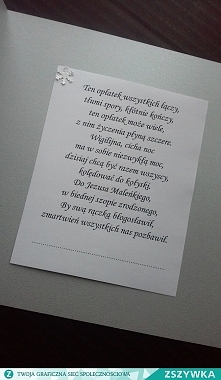 Ten opłatek wszystkich łączy,
tłumi spory, kłótnie kończy,
ten opłatek może wiele,
z nim życzenia płyną szczerze.
Wigilijna, cicha noc
ma w sobie niezwykłą moc,
dzisiaj chcą być razem wszyscy,
kolędować do kołyski.
Do Jezusa Maleńkiego,
w biednej szopie zrodzonego,
By swą rączką błogosławił,
zmartwień wszystkich nas pozbawił.
TWOJA GRAFICZNA SIEĆ SPOŁECZNOŚCIOWA
Z ZSZYWKA